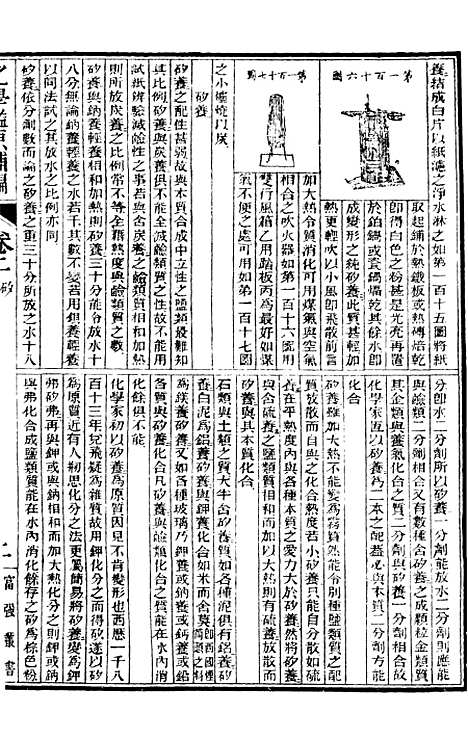 養結成白片以紙濾之淨水淋之如第一百十五圖將紙
取起鋪於熱鐵板或熱磚焙乾
即得白色之粉甚是光亮再置
於鉑鍋或瓷鍋燒乾其餘水即
成變形之純矽養此質若加
熱更輕吹以口即飛散前言
第一百十六圖
加大熱令質消化可用煤氣與空氣
相合之吹火器如第一百十六圖用
雙行風箱之用踏板丙為最好如煤
氣不便之處可用如第一百十七圖
第一百十七圖
之小爐燒以炭
矽養
矽養之配性甚弱故與本質合成中立性之鹽類最難知
其比例矽養與炭養俱不能滅鹼類質之性故不能用
試紙辨驗滅鹼性之事若與含炭養之鹼類質相和加熱
則所放炭養之比例常不等全藉熱度與鹼類質之數
矽養與鈉養相和加熱則矽養三十分能令放水十
八分無論鈉養輕養之水若干其數不變若用鋇養輕養
以同法試之其放水之比例亦同
矽養依分劑數而論之矽養之重三十分所放之水十八
分即水二分劑所以矽養一分劑能放水二分劑則應能
與鹼類二分劑相合又有數種含矽養之成顆粒金類質
其金類與養氣化合之質二分劑與矽養一分劑相合故
化學家匹以矽養為二本之配蓋必與本質二分劑方能
化合
矽養雖加大熱不能變為霧質然能令別種鹽類質
質放散而自與之化合熱度若小矽養只能自分散如硫
養在平熱度內與各種本質之愛力大於矽養然將矽養
與含硫養之鹽類質加大熱則硫養放散而
矽養與其本質化合
石類與土類之質大半含矽養質如各種泥俱有鋁養矽
養白泥為鋁養矽養與鉀養化合如米而舍莫
為鎂養矽養又如各種玻璃乃鉀養或鈉養或鈣養或鉛
各質與矽養化合凡矽養與鹼類化合之質能在水內消
化餘俱不能
化學家初以矽養為原質因見不肯變形也西歷一千八
百十三年兌飛疑為雜質故用鉀化分之而得矽以矽
為原質近有人韌思化分之法更屬簡易將矽養變為鉀
弗矽弗再與鉀或與鈉相和而加大熱化分之則鉀或鈉
與弗化合成鹽類質能在水內消化餘存之矽為棕色粉
化學鑑原補編
卷二
矽
富強叢書